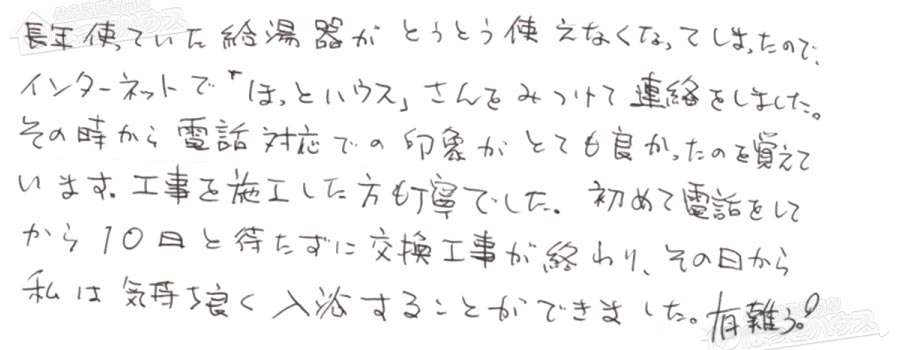 長年使っていた給湯器がとうとう使えなくなってしまったので、
インターネットで「ほっとハウス」さんをみつけて連絡をしました。
その時から電話対応での印象がとても良かったのを覚えて
います。工事を施工した方も丁寧でした。初めて電話をして
から10日と待たずに交換工事が終わり、その日から
私は気持ち良く入浴することができました。有難う。